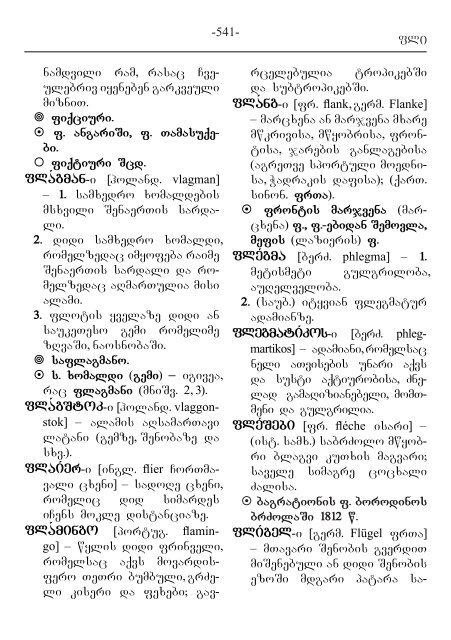 -541-
ფლი
ნამდვილი რამ, რასაც ჩვე-
ულებრივ იყენებენ გარკვეული
მიზნით.
ფიქციური.
ფ. ანგარიში, ფ. თამასუქე-
ბი.
ფიქტიური შცდ.
ფლაგმან-ი [ჰოლანდ. vlagman]
– 1. სამხედრო ხომალდების
მსხვილი შენაერთის სარდა-
ლი.
2. დიდი სამხედრო ხომალდი,
რომელზედაც იმყოფება რაიმე
შენაერთის სარდალი და რო-
მელზედაც აღმართულია მისი
ალამი.
3. ფლოტის ყველაზე დიდი ან
საუკეთესო გემი რომელიმე
ზღვაში, ნაოსნობაში.
საფლაგმანო.
ს. ხომალდი (გემი) – იგივეა,
რაც ფლაგმანი (მნიშვ. 2, 3).
ფლაგშტოკ-ი [ჰოლანდ. vlaggon-
stok] – ალამის აღსამართავი
ლატანი (გემზე, შენობაზე და
სხვ.).
ფლაიერ-ი [ინგლ. flier ჩორთმა-
ვალი ცხენი] – სადოღე ცხენი,
რომელიც დიდ სიმარდეს
იჩენს მოკლე დისტანციაზე.
ფლამინგო [პორტუგ. flamin-
go] – წყლის დიდი ფრინველი,
რომელსაც აქვს მოვარდის-
ფერო თეთრი ბუმბული, გრძე-
ლი კისერი და ფეხები; გავ-
რცელებულია ტროპიკებში
და სუბტროპიკებში.
ფლანგ-ი [ფრ. flank, გერმ. Flanke]
– მარცხენა ან მარჯვენა მხარე
მწკრივისა, მწყობრისა, ფრონ-
ტისა, ჯარების განლაგებისა
(აგრეთვე სპორტული მოედნი-
სა, ჭადრაკის დაფისა); (ქართ.
სინონ. ფრთა).
ფრონტის მარჯვენა (მარ-
ცხენა) ფ., ფ.-ებიდან შემოვლა,
მეფის (ლაზიერის) ფ.
ფლეგმა [ბერძ. phlegma] – 1.
მეტისმეტი გულგრილობა,
აუღელვებლობა.
2. (საუბ.) იტყვიან ფლეგმატურ
ადამიანზე.
ფლეგმატიკოს-ი [ბერძ. phleg-
martikos] – ადამიანი, რომელსაც
ნელი ათვისების უნარი აქვს
და სუსტი აქტიურობისა, ძნე-
ლად გამაღიზიანებელი, მომთ-
მენი და გულგრილია.
ფლეშები [ფრ. fléche ისარი] –
(ისტ. სამხ.) საბრძოლო მწყობ-
რი ბლაგვი კუთხის მაგვარი;
საველე სიმაგრე ცოცხალი
ძალისა.
ბაგრატიონის ფ. ბოროდინოს
ბრძოლაში 1812 წ.
ფლიგელ-ი [გერმ. Flügel ფრთა]
– მთავარი შენობის გვერდით
მიშენებული ან დიდი შენობის
ეზოში მდგარი პატარა სა-